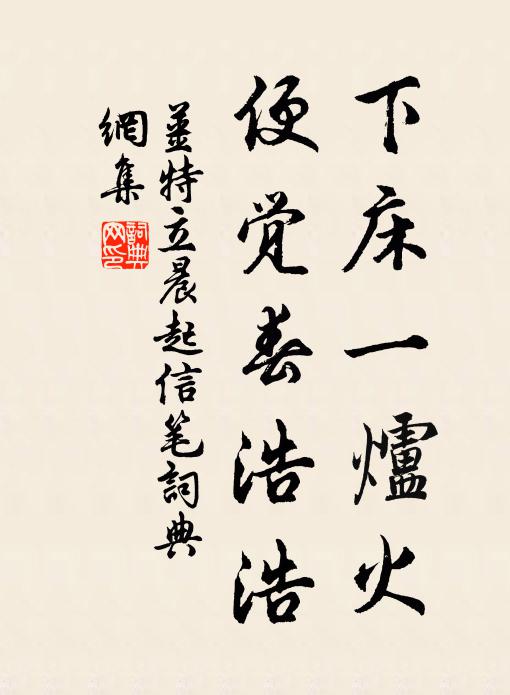 下床一爐火
便觉春浩浩
姜特立晨起信笔詞典
網集
詞典
网印